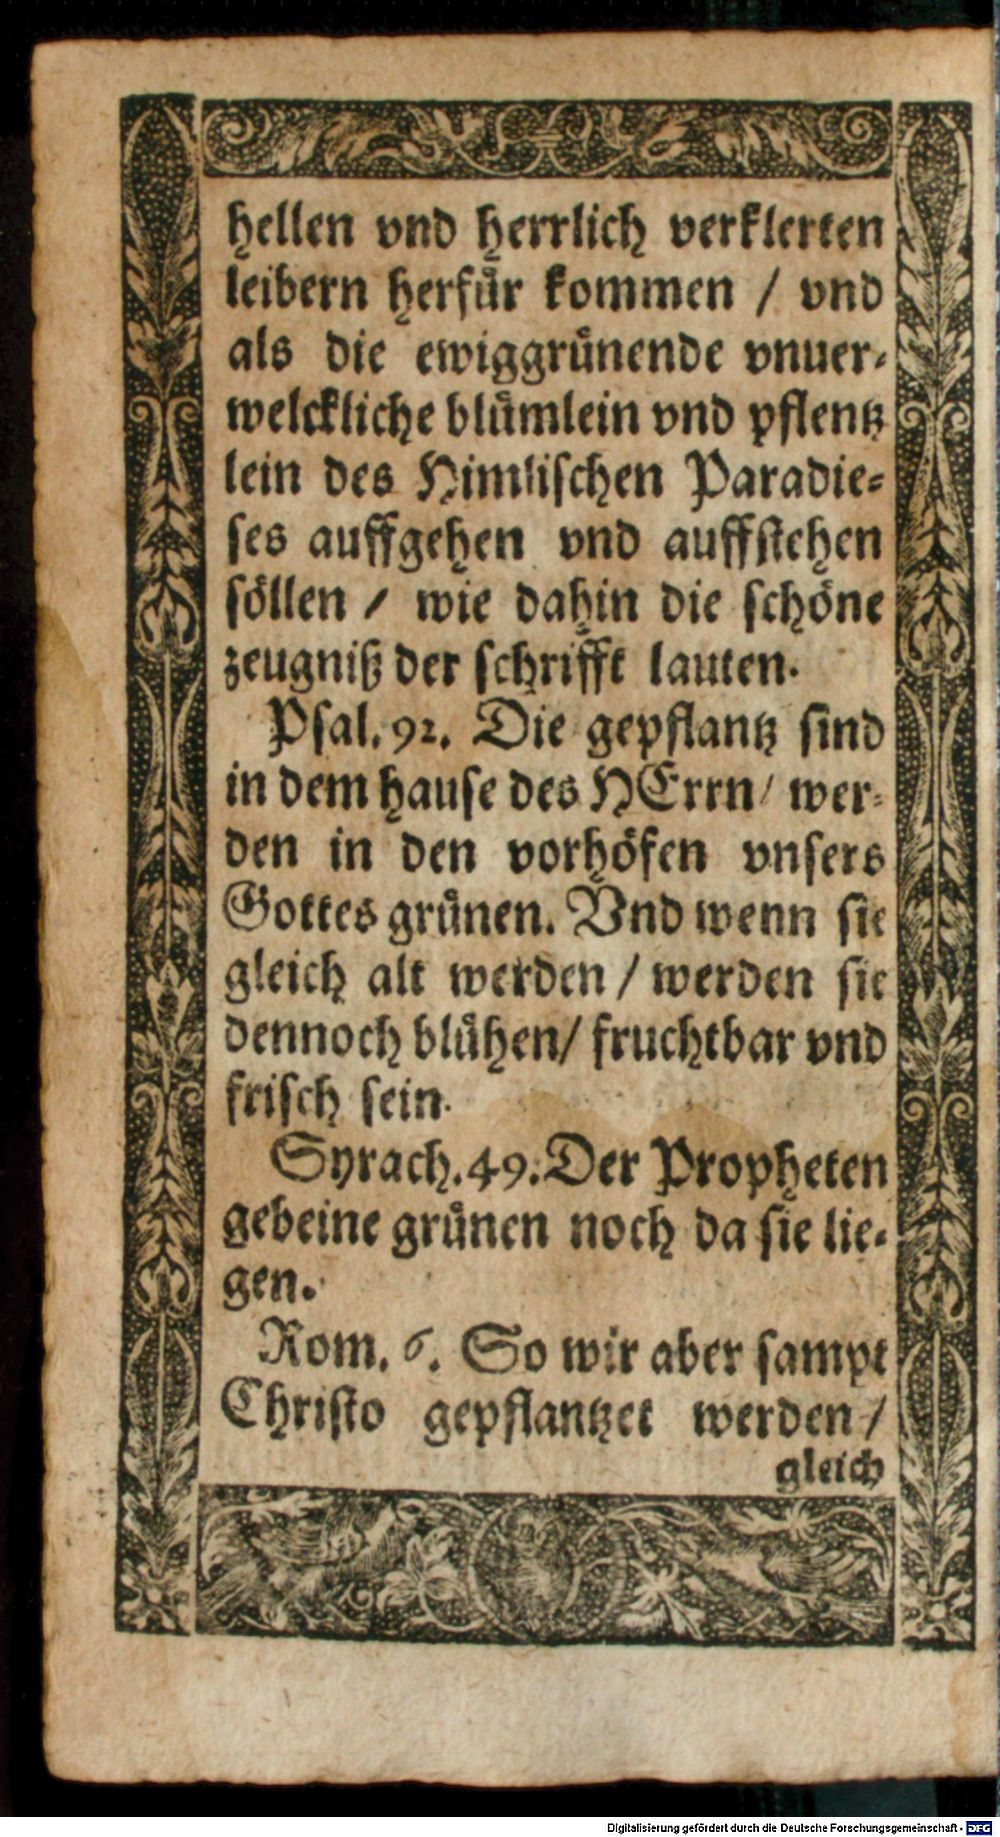 hellen vnd herrlich verklerten
leibern herfuͤr kommen / vnd
als die ewiggruͤnende vnuer⸗
welckliche bluͤmlein vnd pflentz
lein des Himlischen Paradie⸗
ses auffgehen vnd auffstehen
soͤllen / wie dahin die schoͤne
zeugniß der schrifft lauten.
Psal. 92. Die gepflantz sind
in dem hause des HErrn / wer⸗
den in den vorhoͤfen vnsers
Gottes gruͤnen. Vnd wenn sie
gleich alt werden / werden sie
dennoch bluͤhen / fruchtbar vnd
frisch sein.
Syrach. 49. Der Propheten
gebeine gruͤnen noch da sie lie⸗
gen.
Rom. 6. So wir aber sampt
Christo gepflantzet werden /
gleich
Digitalisierung gefördert durch die Deutsche Forschungsgemeinschaft - DFG